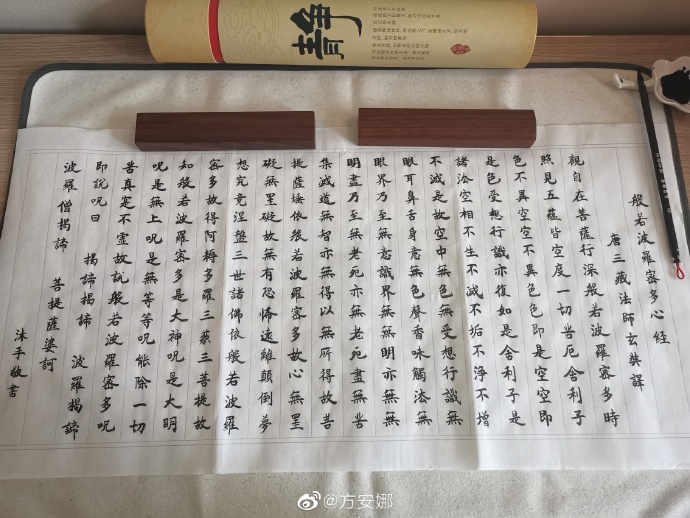 靜
般若波羅密多心經
唐三藏法師玄奘譯
觀自在菩薩行深般若波羅密多時
照見五蘊皆空度一切苦厄舍利子
色不異空空不異色色即是空空即
是色受想行識亦復如是舍利子是
諸法空相不生不滅不垢不淨不增
不滅是故空中無色無受想行識無
眼耳鼻舌身意無色聲香味觸法無
眼界乃至無意識界無無明亦無無
明盡乃至無老死亦無老死盡無苦
集滅道無智亦無得以無所得故菩
提薩埵依般若波羅密多故心無罣
礙無罣礙故無有恐怖遠離顛倒夢
想究竟涅盤三世諸佛依般若波羅
密多故得阿耨多羅三藐三菩提故
知般若波羅密多是大神呪是大明
呪是無上呪是無等等呪能除一切
苦真實不虛故說般若波羅密多呪
即說呪曰 揭諦揭諦 波羅揭諦
波羅僧揭諦 菩提薩婆訶
沐手敬書
@方安娜